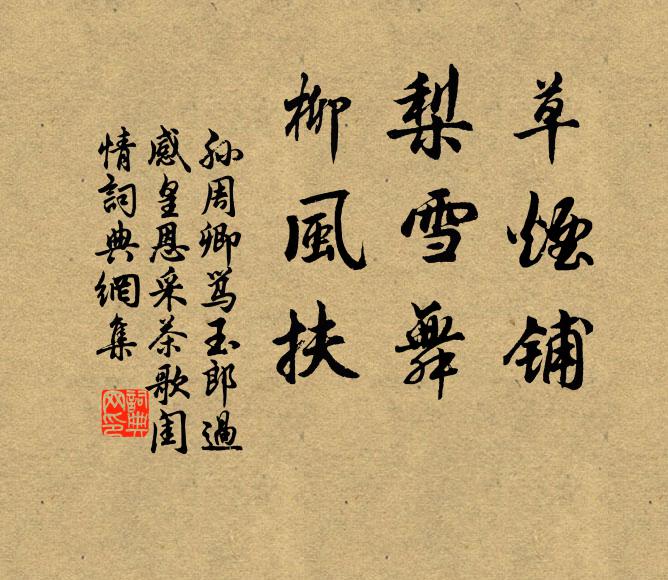 草煙鋪
梨雪舞
柳風扶
孙周卿骂玉郎過
感皇恩采茶歌閨
情詞典網集
詞典
网印